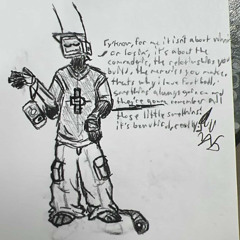 Y'know, for me it isnt about winnin
or losin', it's about the
comradery, the relationships you
build, the memories you make,
thats why i love football,
something always goes on and
they're gonna remember all
those little somethins!
it's beautiful, really